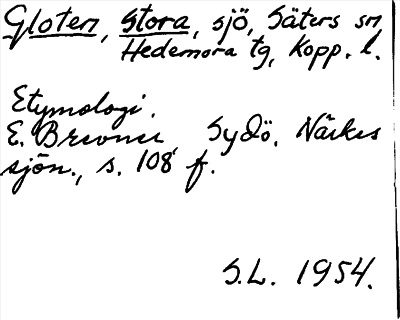 Gloten, Stora, sjö, Säters sn
Hedemora tg, Kopp. l.
Etymologi.
E. Brevner, Sydö. Närkes
sjön., s. 108 f.
S.L. 1954.